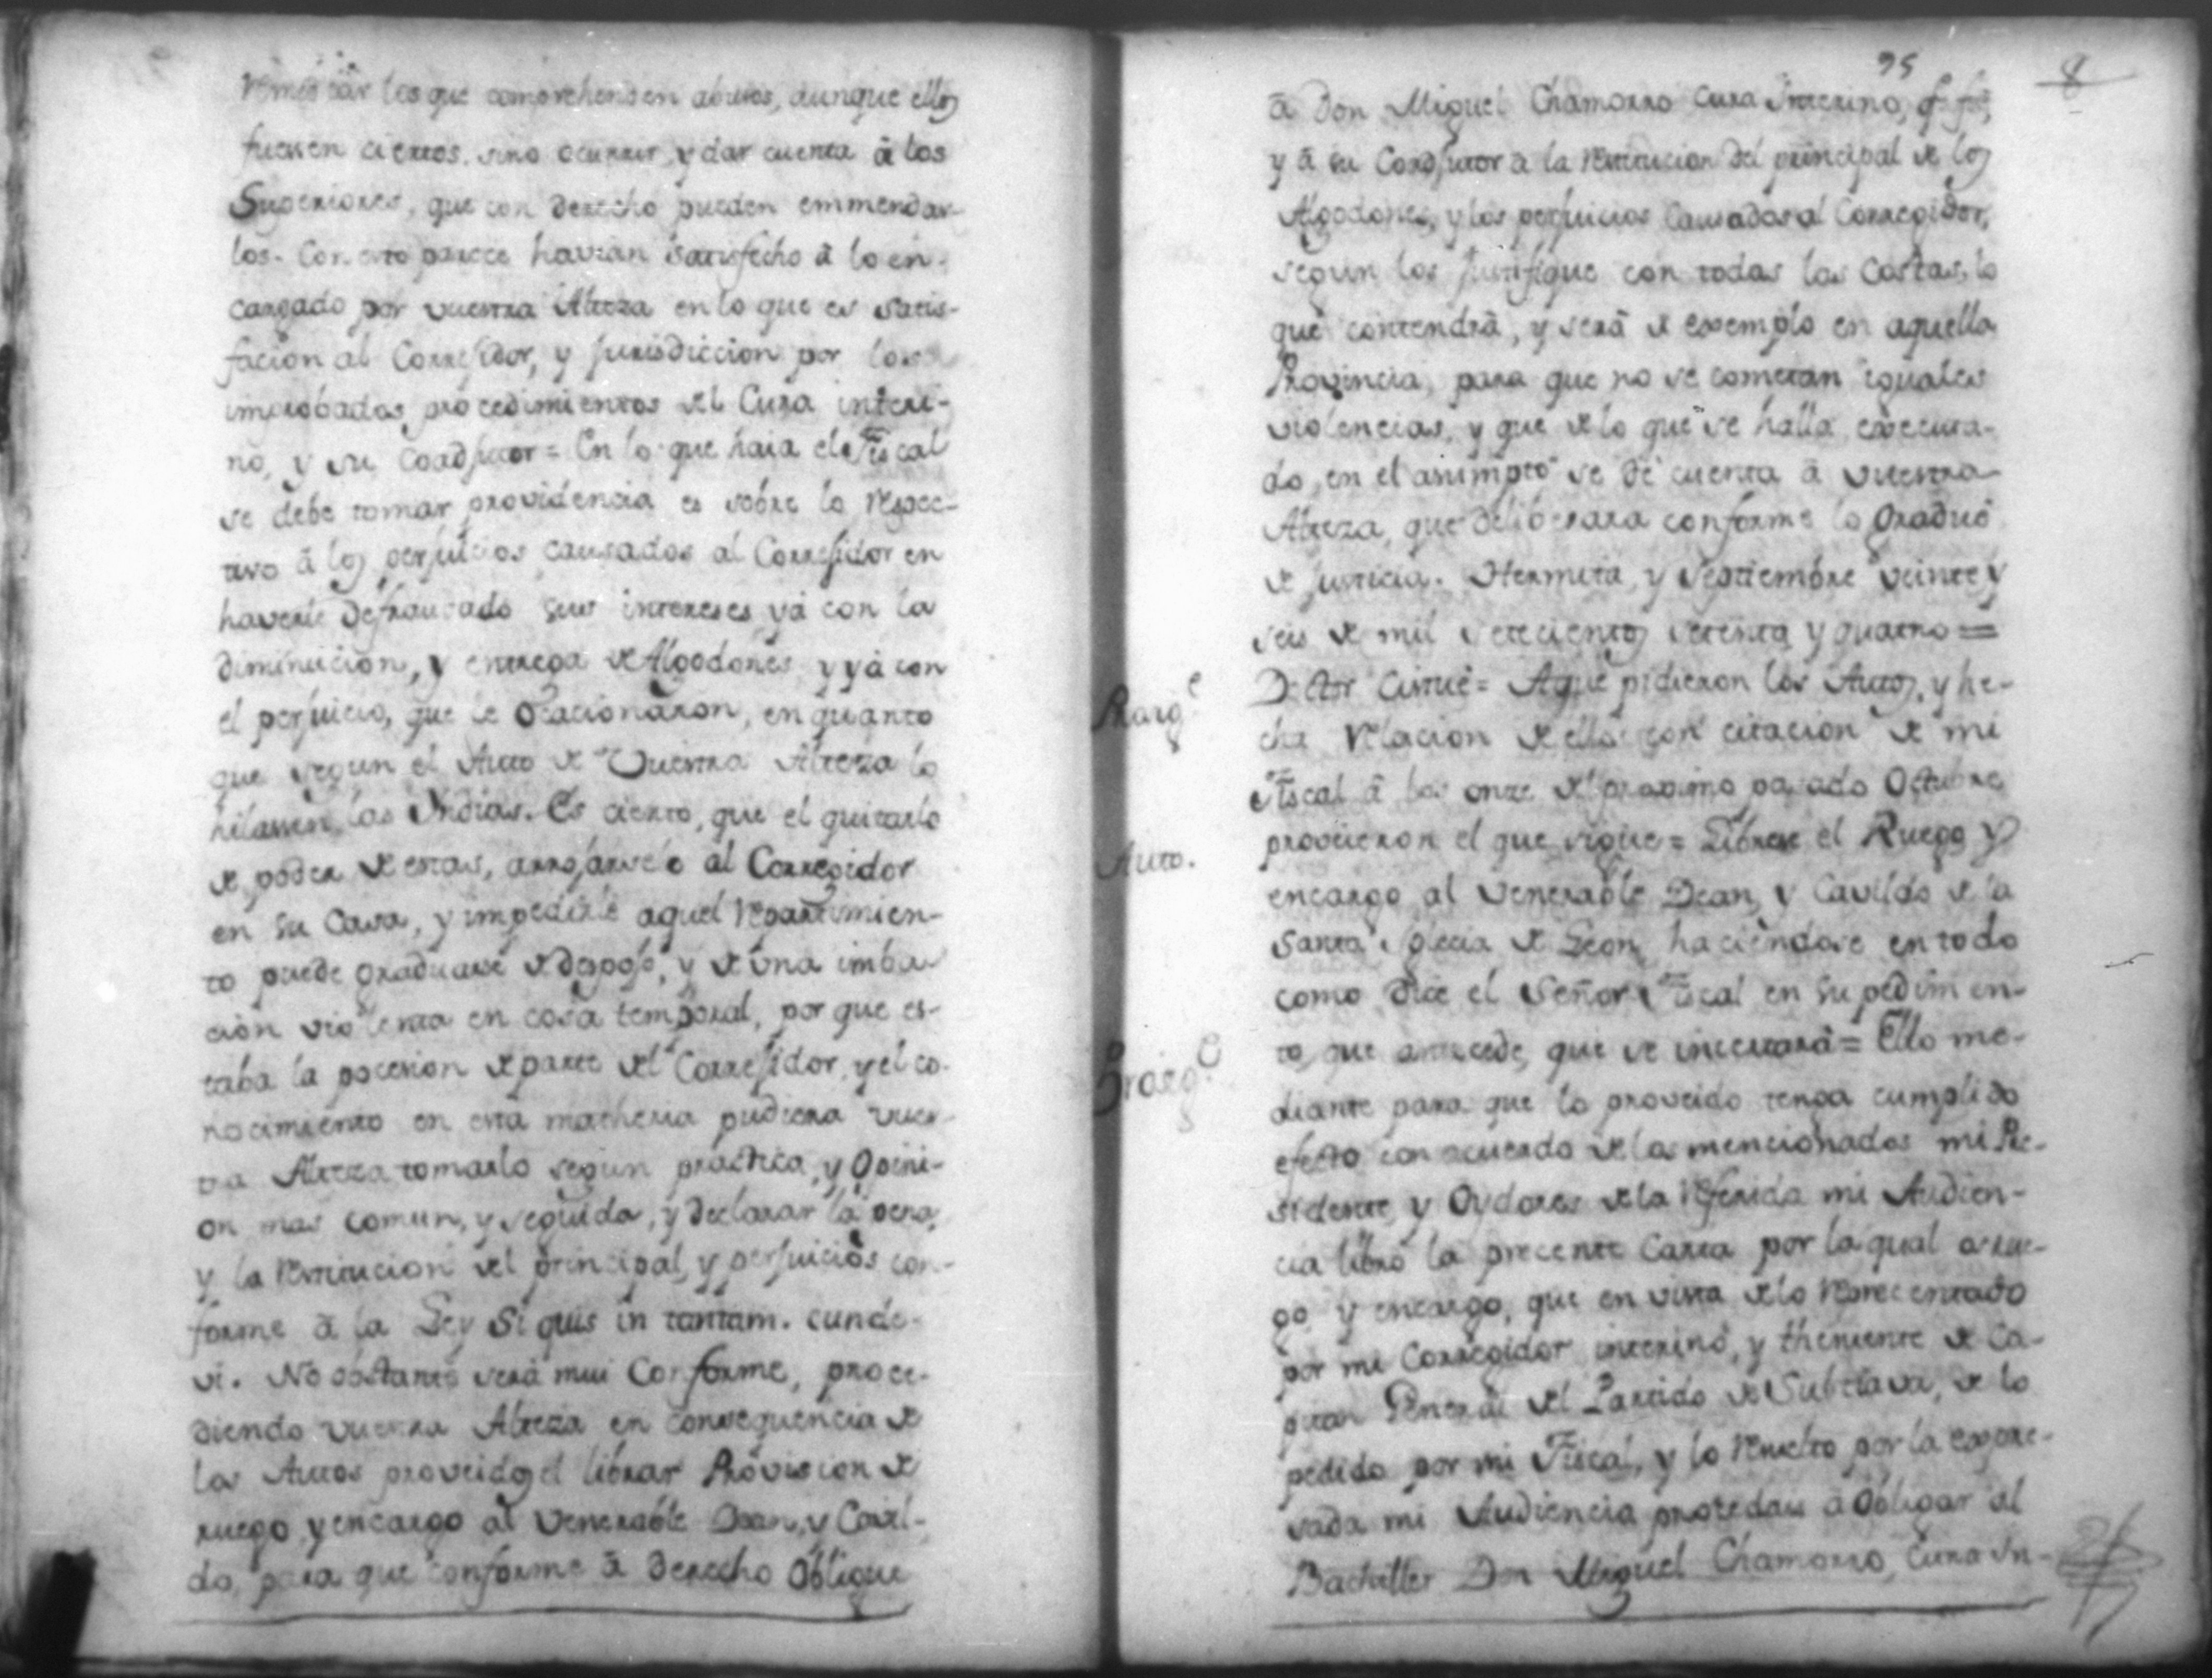 los que comprehenden abusos, aunque ellos
fuessen ciertos, sino ocurrir, y dar cuenta â los
Superiores, que con derecho pueden emmendar-
los. Con esto parece havrán satisfecho â lo en-
cargado por vuestra Alteza en lo que es satis-
facion al Corregidor, y jurisdiccion por los
improbados procedimientos del Cura interi-
no, y su Coadjutor = En lo que haia el Fiscal
se debe tomar providencia es sobre lo respec-
tivo â los perjuicios causados al Corregidor en
haverle defraudado sus intereses yá con la
diminucion, y entrega de Algodones y yá con
el perjuicio, que le Ocacionaron, en quanto
que segun el Auto de Vuestra Alteza lo
hilassen las Yndias. Es cierto, que el quitarlo
de poder de estas, arrojarselo al Corregidor
en su Casa, y impedirle aquel repartimien-
to puede graduarse de despojo, y de una imba-
cion violenta en cosa temporal, por que es-
taba la pocesion de parte del Corregidor, y el co-
nocimiento en esta matheria pudiera vues-
tra Alteza tomarlo segun practica, y Opini-
on mas comun, y seguida, y declarar la pena,
y la restitucion del principal, y perjuicios con-
forme â la Ley Si quis in tantam. cunde.
vi. No obstante será mui Conforme, proce-
diendo vuestra Alteza en consequencia de
los Autos proveidos el librar Provision de
ruego y encargo al Venerable Dean, y Cavil-
do, para que conforme â derecho Obligue
95 8
â Don Miguel Chamorro Cura Ynterino, q.e fué,
y â su Coadjutor a la restitucion del principal de los
Algodones, y los perjuicios Causados al Corregidor,
segun los justifique con todas las Costas, lo
que contendrâ, y serâ de exemplo en aquella
Provincia, para que no se cometan iguales
violencias, y que de lo que se halla executa-
do, en el asumpto se dé cuenta â vuestra
Alteza, que deliberara conforme lo Graduó
de justicia. Hermita, y Septiembre veinte y
seis de mil setecientos setenta y quatro =
Doctor Cistué = A que pidieron los Autos, y he-
Prosig.e
cha relacion de ellos con citacion de mi
Fiscal â los onze del proximo pasado Octubre
proveieron el que sigue = Librese el Ruego y
Auto.
encargo al Venerable Dean, y Cavildo de la
Santa Yglecia de Leon, haciendose en todo
como dice el Señor Fiscal en su pedimen-
to, que antecede, que se insertarâ = Ello me-
Prosig.e
diante para que lo proveido tenga cumplido
efecto con acuerdo de los mencionados mi Pre-
sidente, y Oydores de la referida mi Audien-
cia libro la precente Carta por la qual os rue-
go y encargo, que en vista de lo reprecentado
por mi Corregidor interino, y theniente de Ca-
pitan General del Partido de Subtiava, de lo
pedido por mi Fiscal, y lo resuelto por la expre-
sada mi Audiencia procedais â Obligar al
Bachiller Don Miguel Chamorro, Cura Yn-